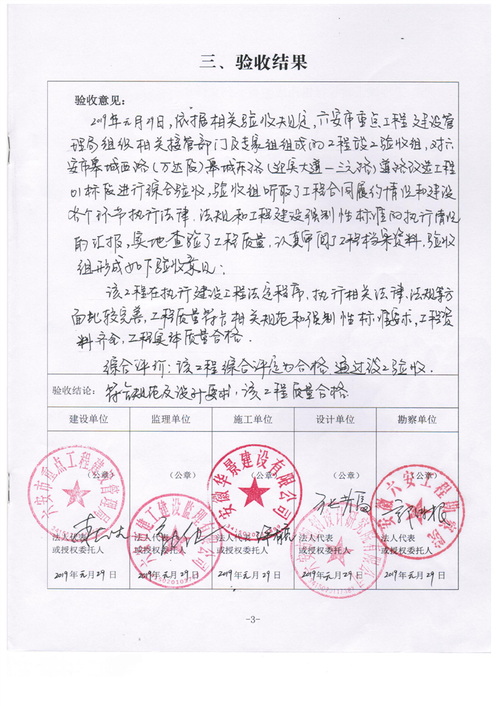 三、验收结果
验收意见：
2019年元月29日，依据相关验收规定，六安市重点工程建设管
理局组织相关接管部门及专家组组成的工程竣工验收组，对六
安市皋城西路（万达段）皋城东路（迎宾大道—三元路）道路改造工程
01标段进行综合验收，验收组听取了工程合同履约情况和建设
各个环节执行法律、法规和工程建设强制性标准的执行情况
的汇报，实地查验了工程质量，认真审阅了工程档案资料，验收
组形成如下验收意见：
该工程在执行建设工程法定程序，执行相关法律、法规等方
面比较完善，工程质量符合相关规范和强制性标准要求，工程资
料齐全，工程实体质量合格。
综合评价：该工程综合评定为合格，通过竣工验收。
验收结论：
符合规范及设计要求，该工程质量合格。
建设单位 监理单位 施工单位 设计单位 勘察单位
（公章） （公章） （公章） （公章）
六安市重点工程建设管理局
安徽华景建设有限公司
法人代表 法人代表 法人代表 法人代表 法人代表
或授权委托人 或授权委托人 或授权委托人 或授权委托人 或授权委托人
2019年元月29日 2019年元月29日 2019年元月29日 2019年元月29日 2019年元月29日
-3-